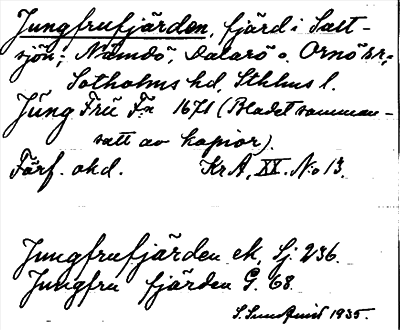 Jungfrufjärden, fjärd i Salt-
sjön; Nämdö, Dalarö o. Ornö sr;
Sotholms hd, Sthlms l.
Jung Fru F:n 1671 (Bladet samman-
satt av kopior).
Förf. okd. KrA, XX. N:o 13.
Jungfrufjärden ek, Sj. 236.
Jungfru fjärden G. 68.
1935.